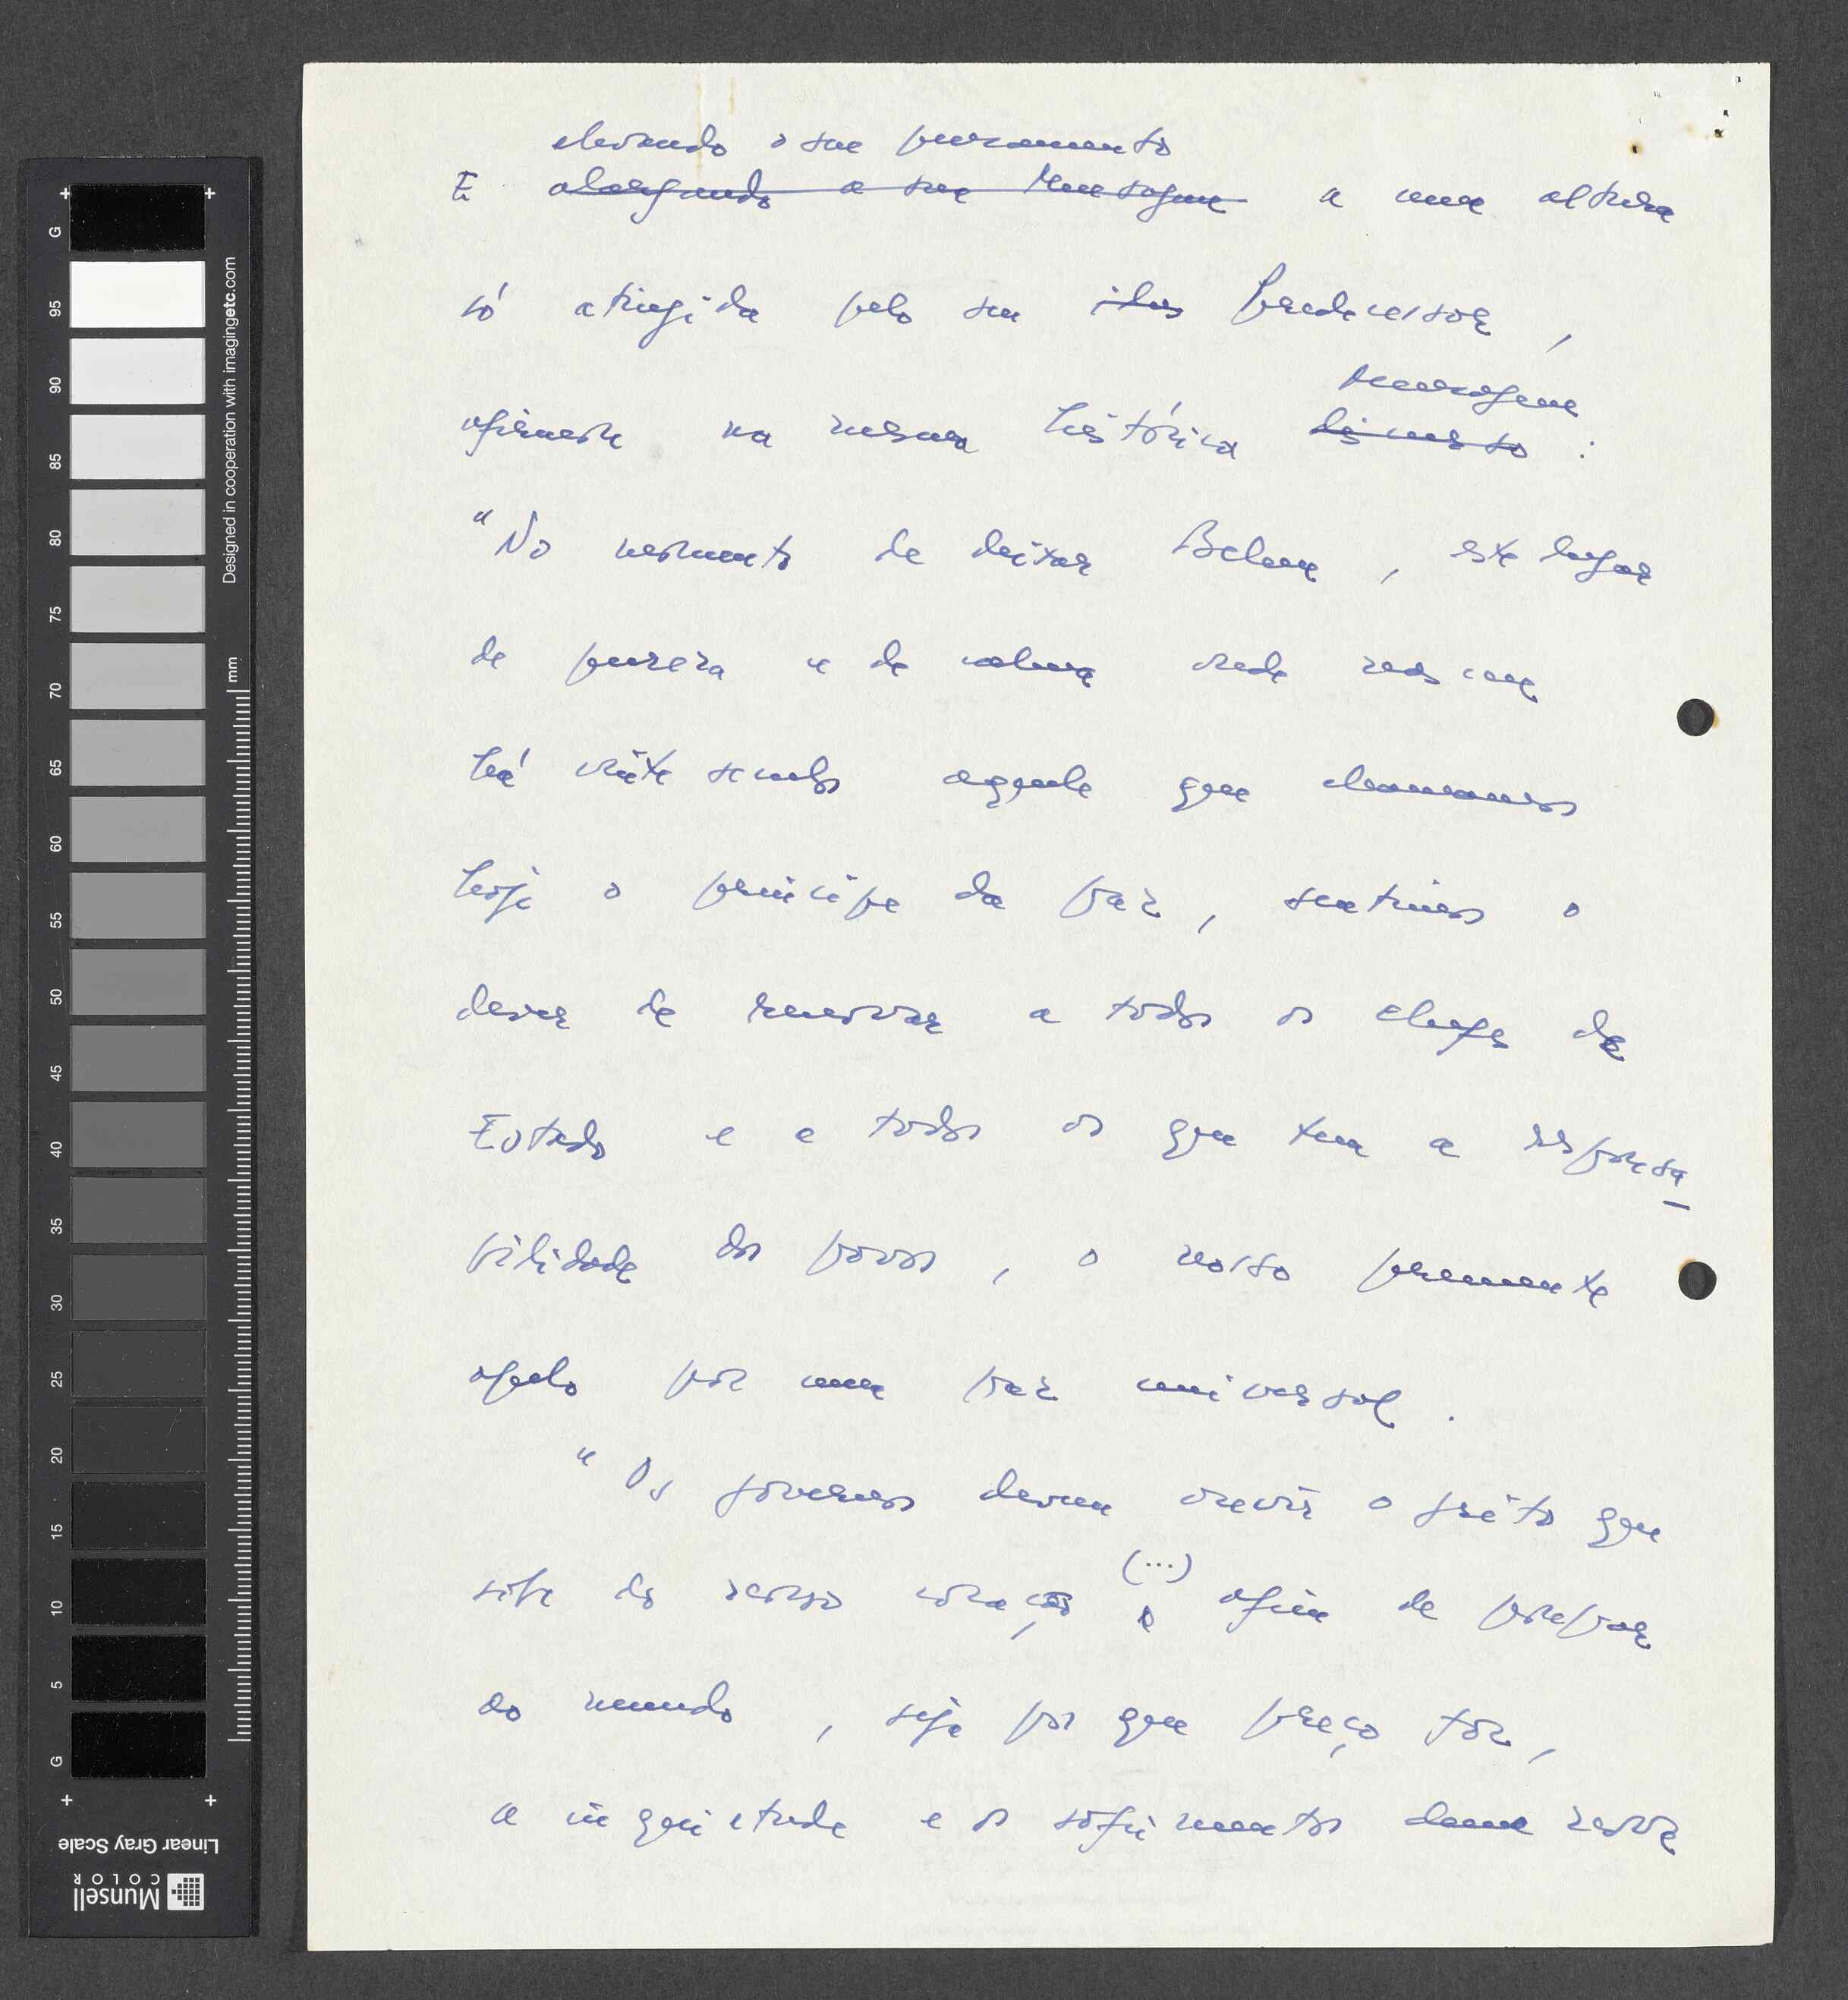 elevando o seu pensamento
E alargando a sua Mensagem a uma altura
só atingida pelo seu predecessor,
mensagem
afirmava na mesma histórica discurso :
"No momento de deixar Belem, este lugar
de pureza e de calma onde nasceu
há vinte seculos aquele que chamamos
hoje o principe da paz, sentimos o
dever de renovar a todos os chefes de
Estado e a todos os que tem a responsa-
bilidade dos povos, o nosso premente
apelo por uma paz universal.
"Os governos devem ouvir o grito que
(...)
sobe do nosso coração e afim de poupar
ao mundo, seja por que preço fôr,
a inquietude e os sofrimentos duma nova
G 95 90 85 80 75 70 65 60 55 50 45 40 35 30 25 20 15 10 5 G
mm
Designed in cooperation with imagingetc.com
Linear Gray Scale
Munsell
COLOR